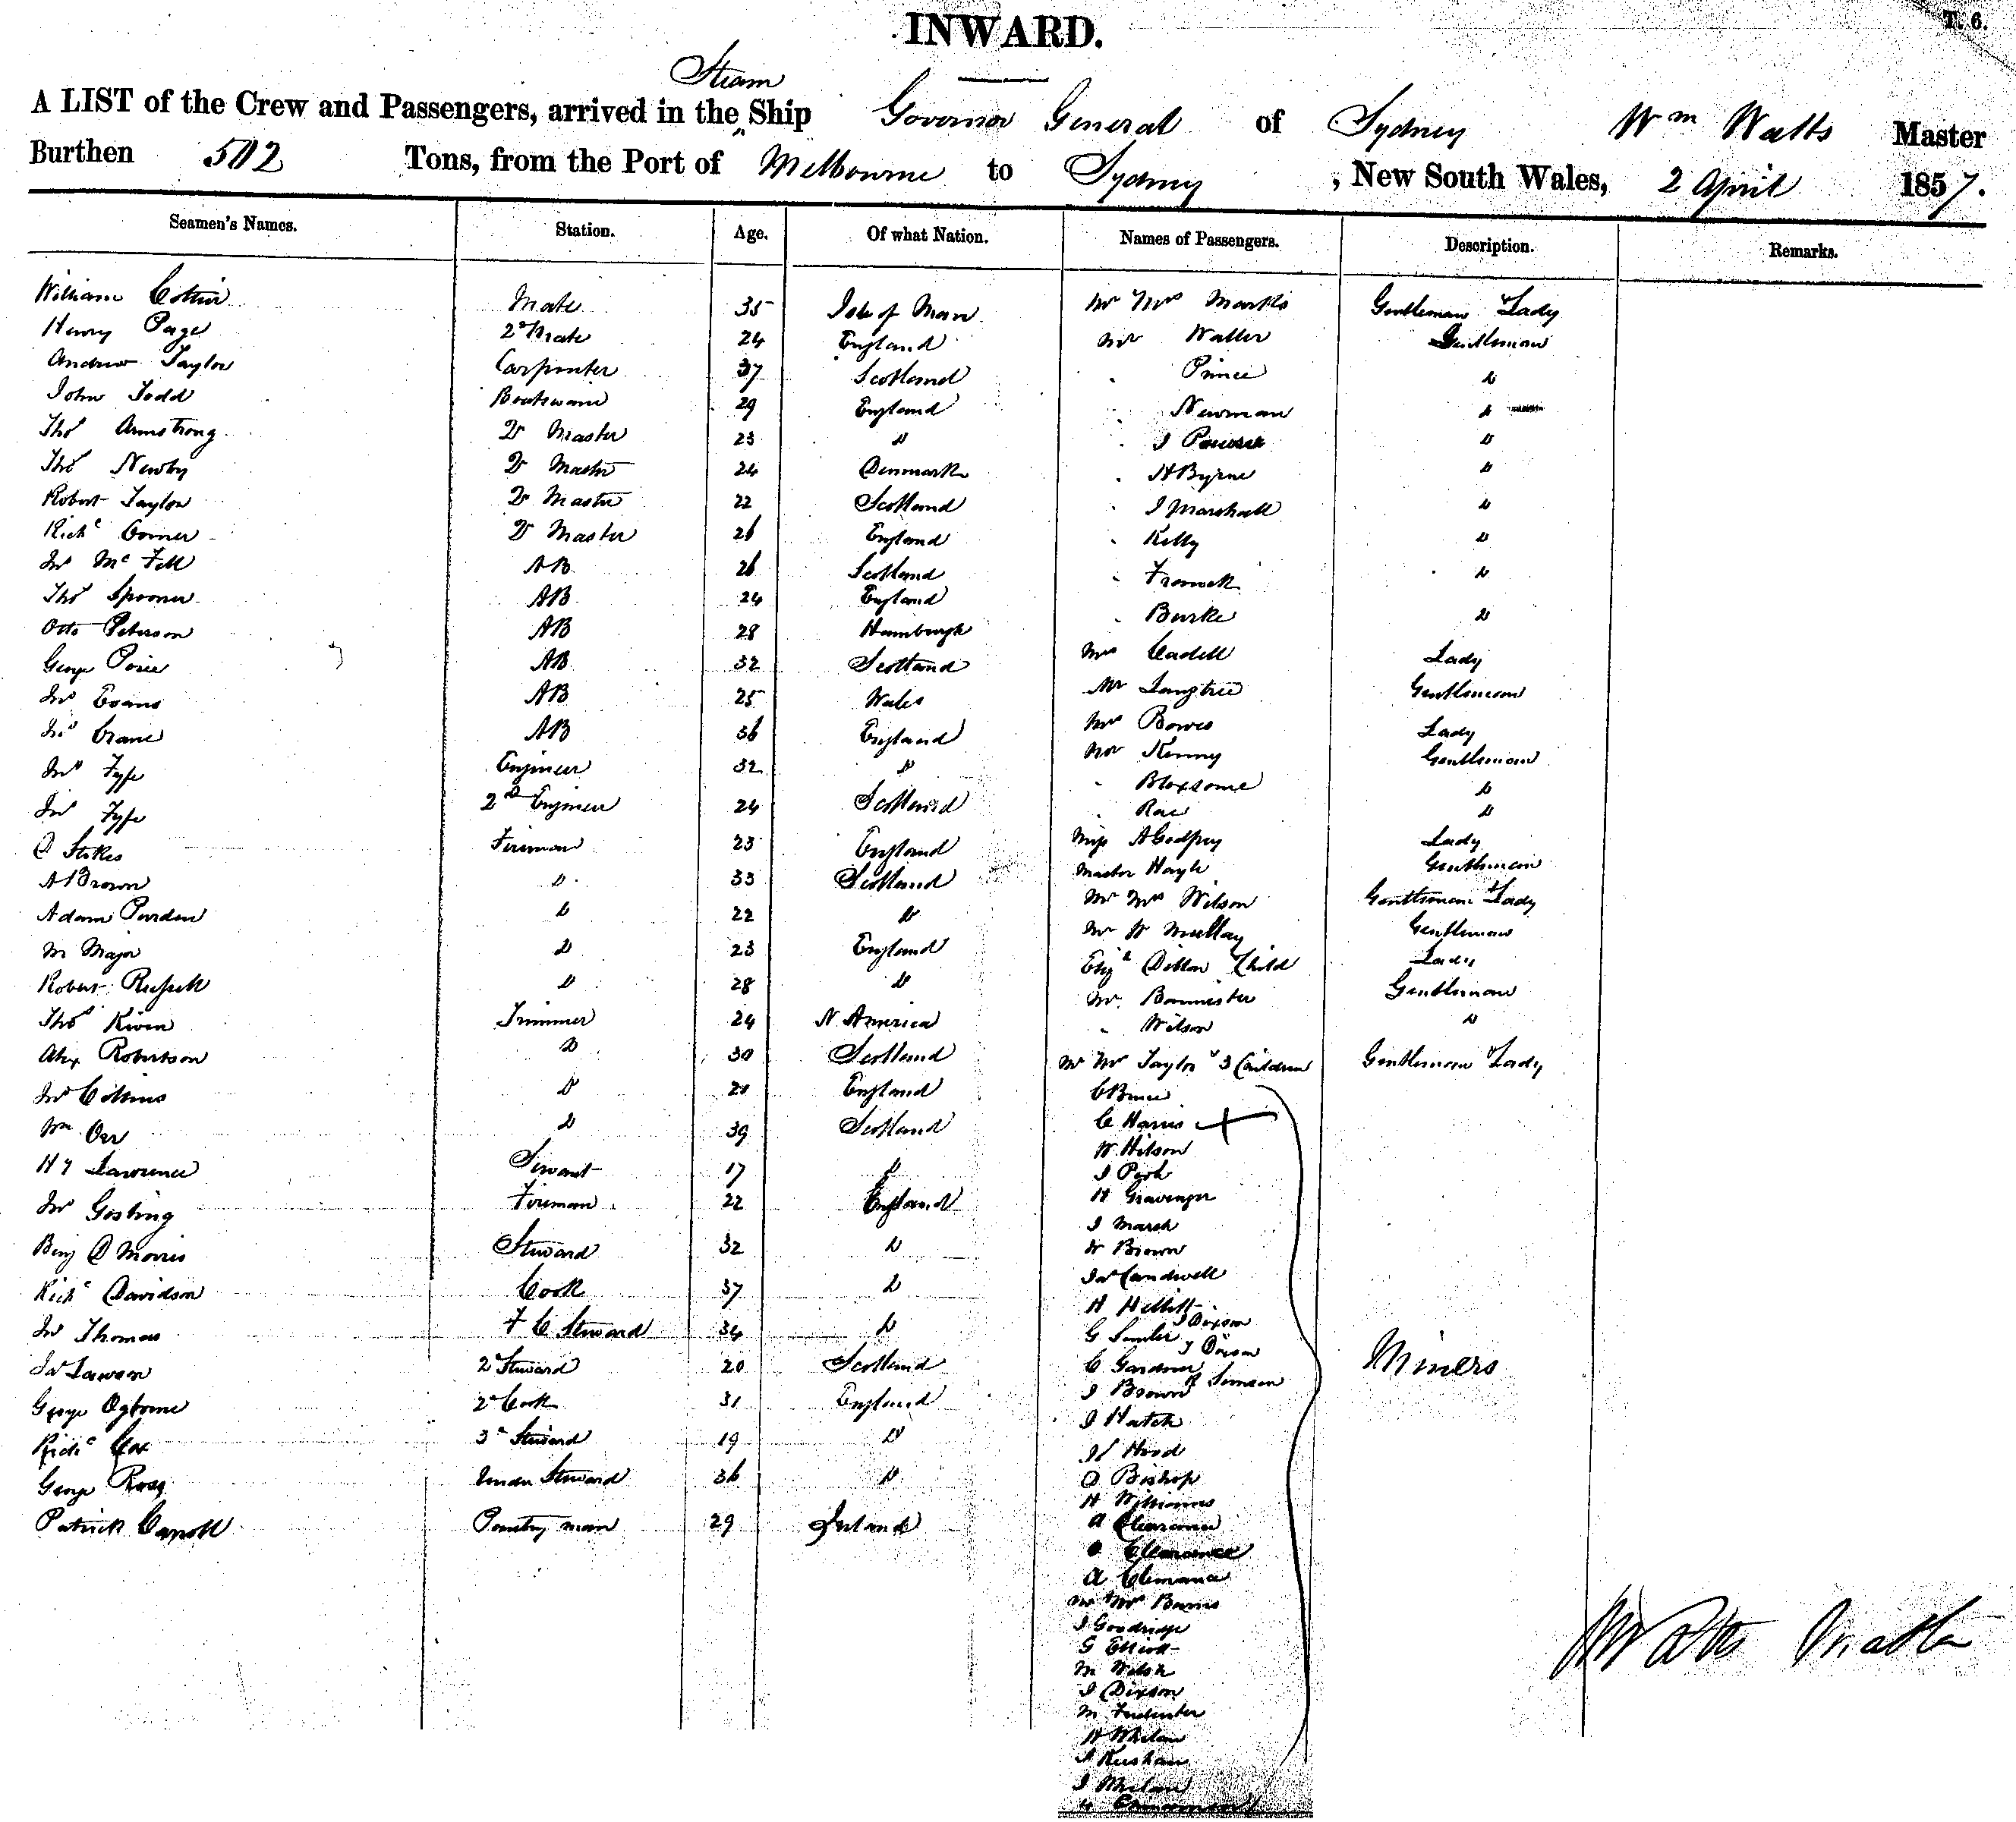 T. 6.
INWARD.
Steam
A LIST of the Crew and Passengers, arrived in the Ship Governor General of Sydney Wm Watts Master
Burthen 502 Tons, from the Port of Melbourne to Sydney, New South Wales, 2 April 1857.
Seamen's Names. Station. Age. Of what Nation. Names of Passengers. Description. Remarks.
William Mate 35 Isle of Man Mr Mrs Marks Gentleman & Lady
Henry Page 2d Mate 24 England Mr Waller Gentleman
Andrew Taylor Carpenter 37 Scotland " Prince Do
John Todd Boatswain 29 England " Newman Do
Thos Armstrong Qr Master 23 Do " J Do
Thos Newby Qr Master 24 Denmark " H Byrne Do
Robert Taylor Qr Master 22 Scotland " J Marshall Do
Richd Corner Qr Master 26 England " Kelly Do
Jno Mc Fell AB 26 Scotland " Do
Thos Spooner AB 24 England " Burke Do
Otto Peterson AB 28 Hamburgh Mrs Cadell Lady
George AB 32 Scotland Mr Langtree Gentleman
Jno Evans AB 25 Wales Mrs Bowes Lady
Jno Crane AB 36 England Mr Kenny Gentleman
Jno Fyfe Engineer 32 Do " Bloxsome Do
Jno Fyfe 2nd Engineer 24 Scotland " Rae Do
D Stokes Fireman 23 England Miss A Godfrey Lady
A Brown Do 33 Scotland Master Hayle Gentleman
Adam Purden Do 22 Do Mr Mrs Wilson Gentleman & Lady
M Major Do 23 England Mr W Mullay Gentleman
Robert Russell Do 28 Do Elizh Dillon Child Lady
Thos Trimmer 24 N America Mr Bannister Gentleman
Alex Robertson Do 30 Scotland " Wilson Do
Jno Collins Do 21 England Mr Mrs Taylor & 3 Children Gentleman & Lady
Wm Orr Do 39 Scotland C Bruce
Hy Lawrence Servant 17 Do C Harris
Jno Gosling Fireman 22 England W Wilson
Benj D Morris Steward 32 Do J
Richd Davidson Cook 37 Do H Gravenger
Jno Thomas F C Steward 34 Do J Marsh
Jas Lawson 2d Steward 20 Scotland W Brown
George Ogborne 2d Cook 31 England Jas Candwell
Richd Cox 3d Steward 19 Do H
George Ross Steward 36 Do G J Dixon
Patrick Carroll Pantry man 29 Ireland C Gardner J Dixon
J Brown
J Hatch
Hood
D Bishop
H Williams
A Clemance
Clemance
A Clemance
Mr Mrs
J Goodridge
G Elliott
M
J Dixon
M
H Whelan
J Whelan
Miners
W Watts Master